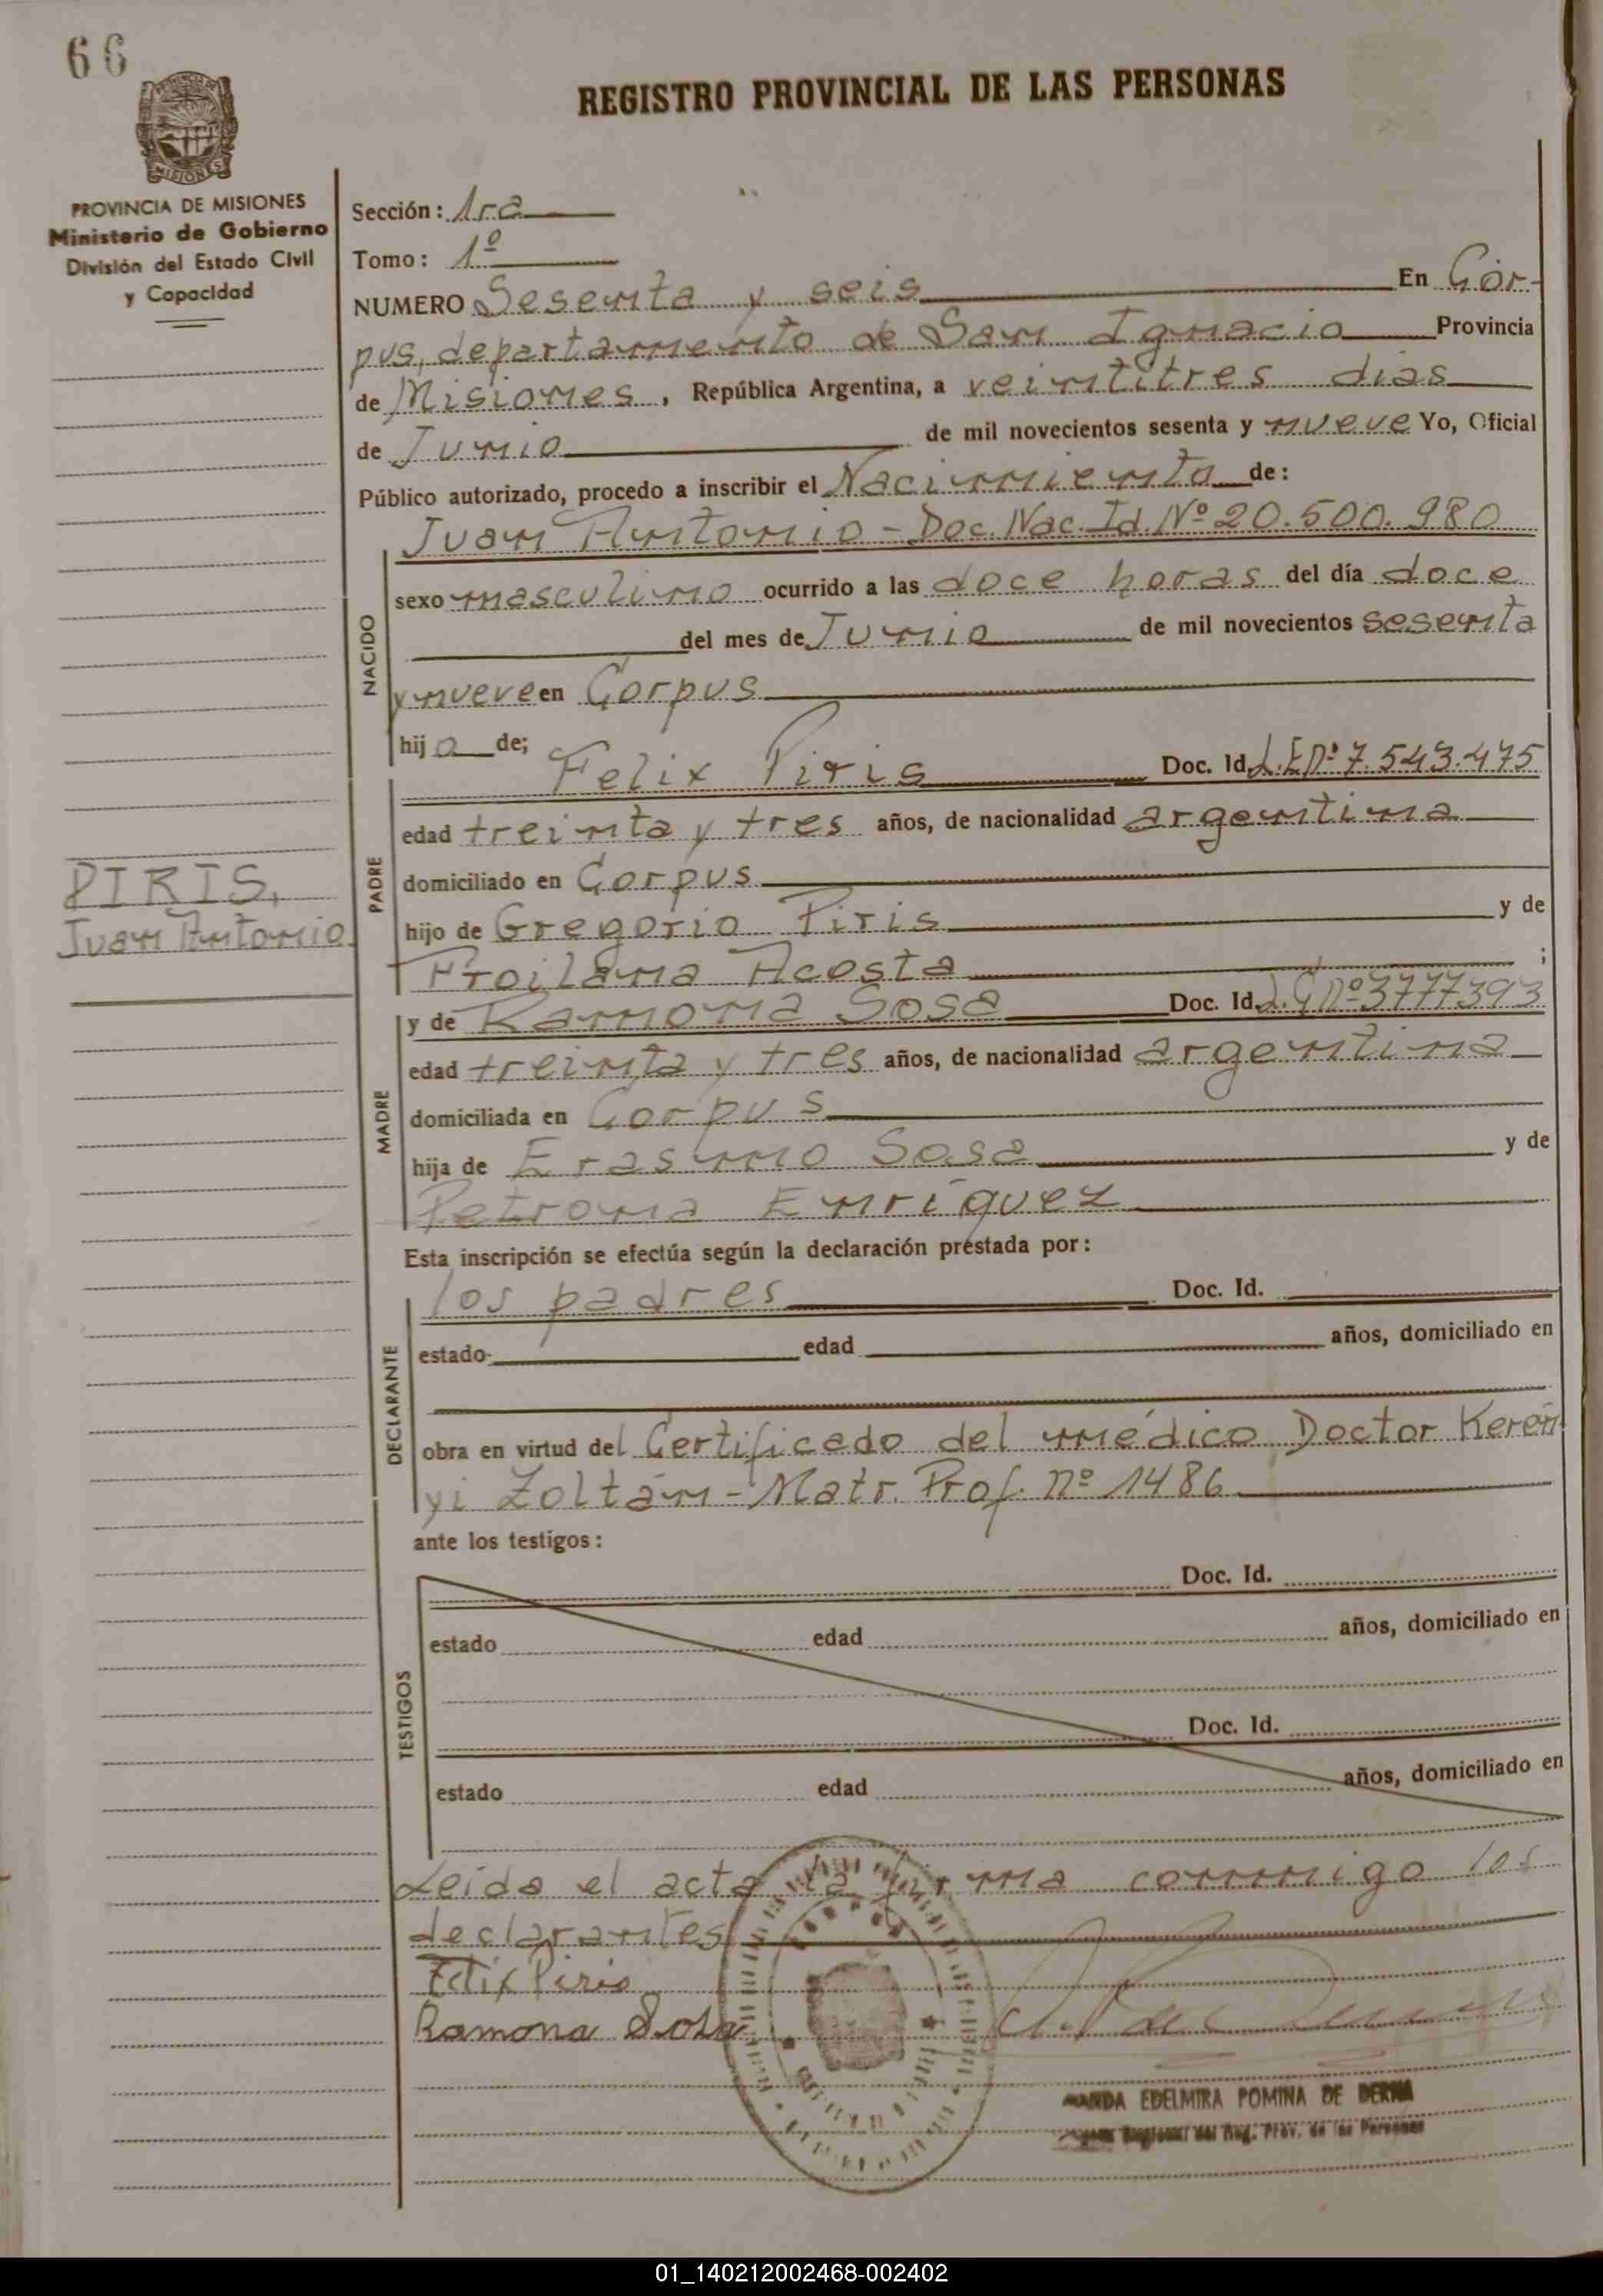 66
REGISTRO PROVINCIAL DE LAS PERSONAS
PROVINCIA DE MISIONES
Ministerio de Gobierno
División del Estado Civil
y Capacidad
Sección: 1ra
Tomo: 1º
NUMERO Sesenta y seis En Cor-
pus, departamento de San Ignacio Provincia
de Misiones, República Argentina, a veintitres dias
de Junio de mil novecientos sesenta y nueve Yo, Oficial
Público autorizado, procedo a inscribir el Nacimiento de:
NACIDO
Juan Antonio - Doc. Nac. Id. Nº 20.500.980
sexo masculino ocurrido a las doce horas del día doce
del mes de Junio de mil novecientos sesenta
y nueve en Corpus
hijo de;
PADRE
Felix Piris Doc. Id. L.E nº 7.543.475
edad treinta y tres años, de nacionalidad argentina
domiciliado en Corpus
PIRIS,
Juan Antonio
hijo de Gregorio Piris y de
Froilana Acosta ;
MADRE
y de Ramona Sosa Doc. Id. L.C nº 3777393
edad treinta y tres años, de nacionalidad argentina
domiciliada en Corpus
hija de Erasmo Sosa y de
Petrona Enriquez
Esta inscripción se efectúa según la declaración prestada por:
DECLARANTE
los padres Doc. Id.
estado edad años, domiciliado en
obra en virtud del Certificado del médico Doctor Keren
yi Zoltán - Matr. Prof. nº 1486
ante los testigos:
TESTIGOS
Doc. Id.
estado edad años, domiciliado en
Doc. Id.
estado edad años, domiciliado en
Leida el acta la firma conmigo los
declarantes
Felix Piris
Ramona Sosa
EDELMIRA POMINA DE
del Reg. Prov. de las Personas
01_140212002468-002402